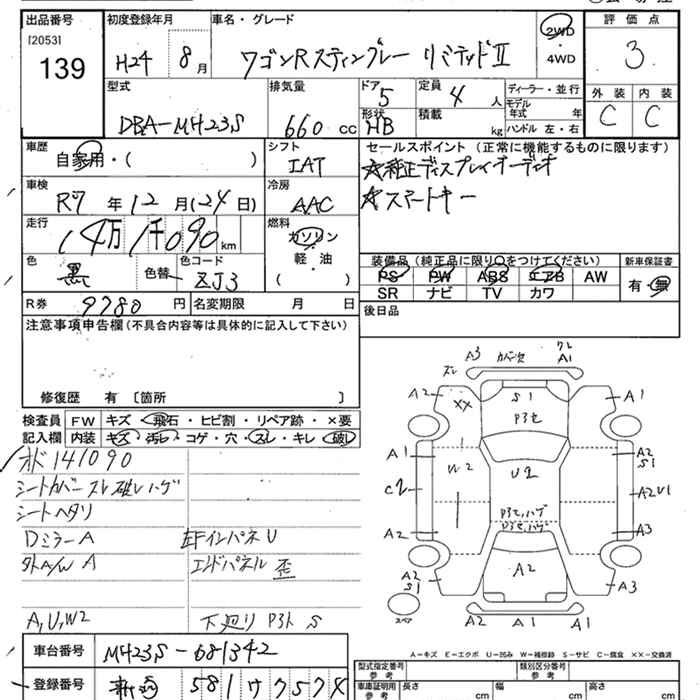 出品番号 初度登録年月 車名・グレード 評価点
[2053] 139 H24 8月 ワゴンRスティングレー リミテッドⅡ 2WD ・4WD 3
型式 排気量 ドア 定員 ディーラー・並行 外装 内装
DBA-MH23S 660 cc 5 4人 モデル年式 年 C C
形状 HB 積載 kg ハンドル 左・右
車歴 シフト セールスポイント (正常に機能するものに限ります)
自家用・( ) IAT ☆純正ディスプレイオーディオ
車検 冷房 ☆スマートキー
R7年12月(24日) AAC
走行 燃料
14万1千090km ガソリン 軽・油 ( )
色 色替 色コード 装備品 (純正品に限り○をつけてください) 新車保証書
黒 ZJ3 PS PW ABS エアB AW 有・無
SR ナビ TV カワ
R券 9780円 名変期限 月 日 後日品
注意事項申告欄 (不具合内容等は具体的に記入して下さい)
修復歴 有 〔箇所 〕
検査員 FW キズ・飛石・ヒビ割・リペア跡・×要
記入欄 内装 キズ・汚れ・コゲ・穴・スレ・キレ・破れ
メド 141090
シートカバー スレ 破レ ハゲ
シートヘタリ
Dミラー A EFインパネ U
外A/W A エンドパネル 歪
A,U,W2 下廻り P3ト S
車台番号 MH23S-681342
登録番号 581
スレ A3 カバー欠 ワレ A1
A2 XX S1 P3セ A1
A1 W2 U2 A2 S1
C2 A2U1
P3セ,ハゲ
A2 A3
A2 S1 A2 A3
スペア A2 A1 A1
A-キズ E-エクボ U-凹み W-補修跡 S-サビ C-腐食 XX-交換済
型式指定番号 参考 類別区分番号 参考
車庫証明用 参考 長さ cm 幅 cm 高さ cm